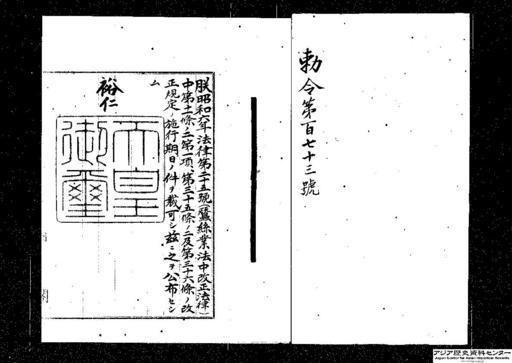 勅令第百七十三號
朕昭和六年法律第二十五號(蠶絲業法中改正法律)
中第十一條ノ二第一項、第三十五條ノ二及第三十六條ノ改
正規定ノ施行期日ノ件ヲ裁可シ茲ニ之ヲ公布セシ
ム
裕仁
天皇
御璽
アジア歴史資料センター
Japan Center for Asian Historical Records